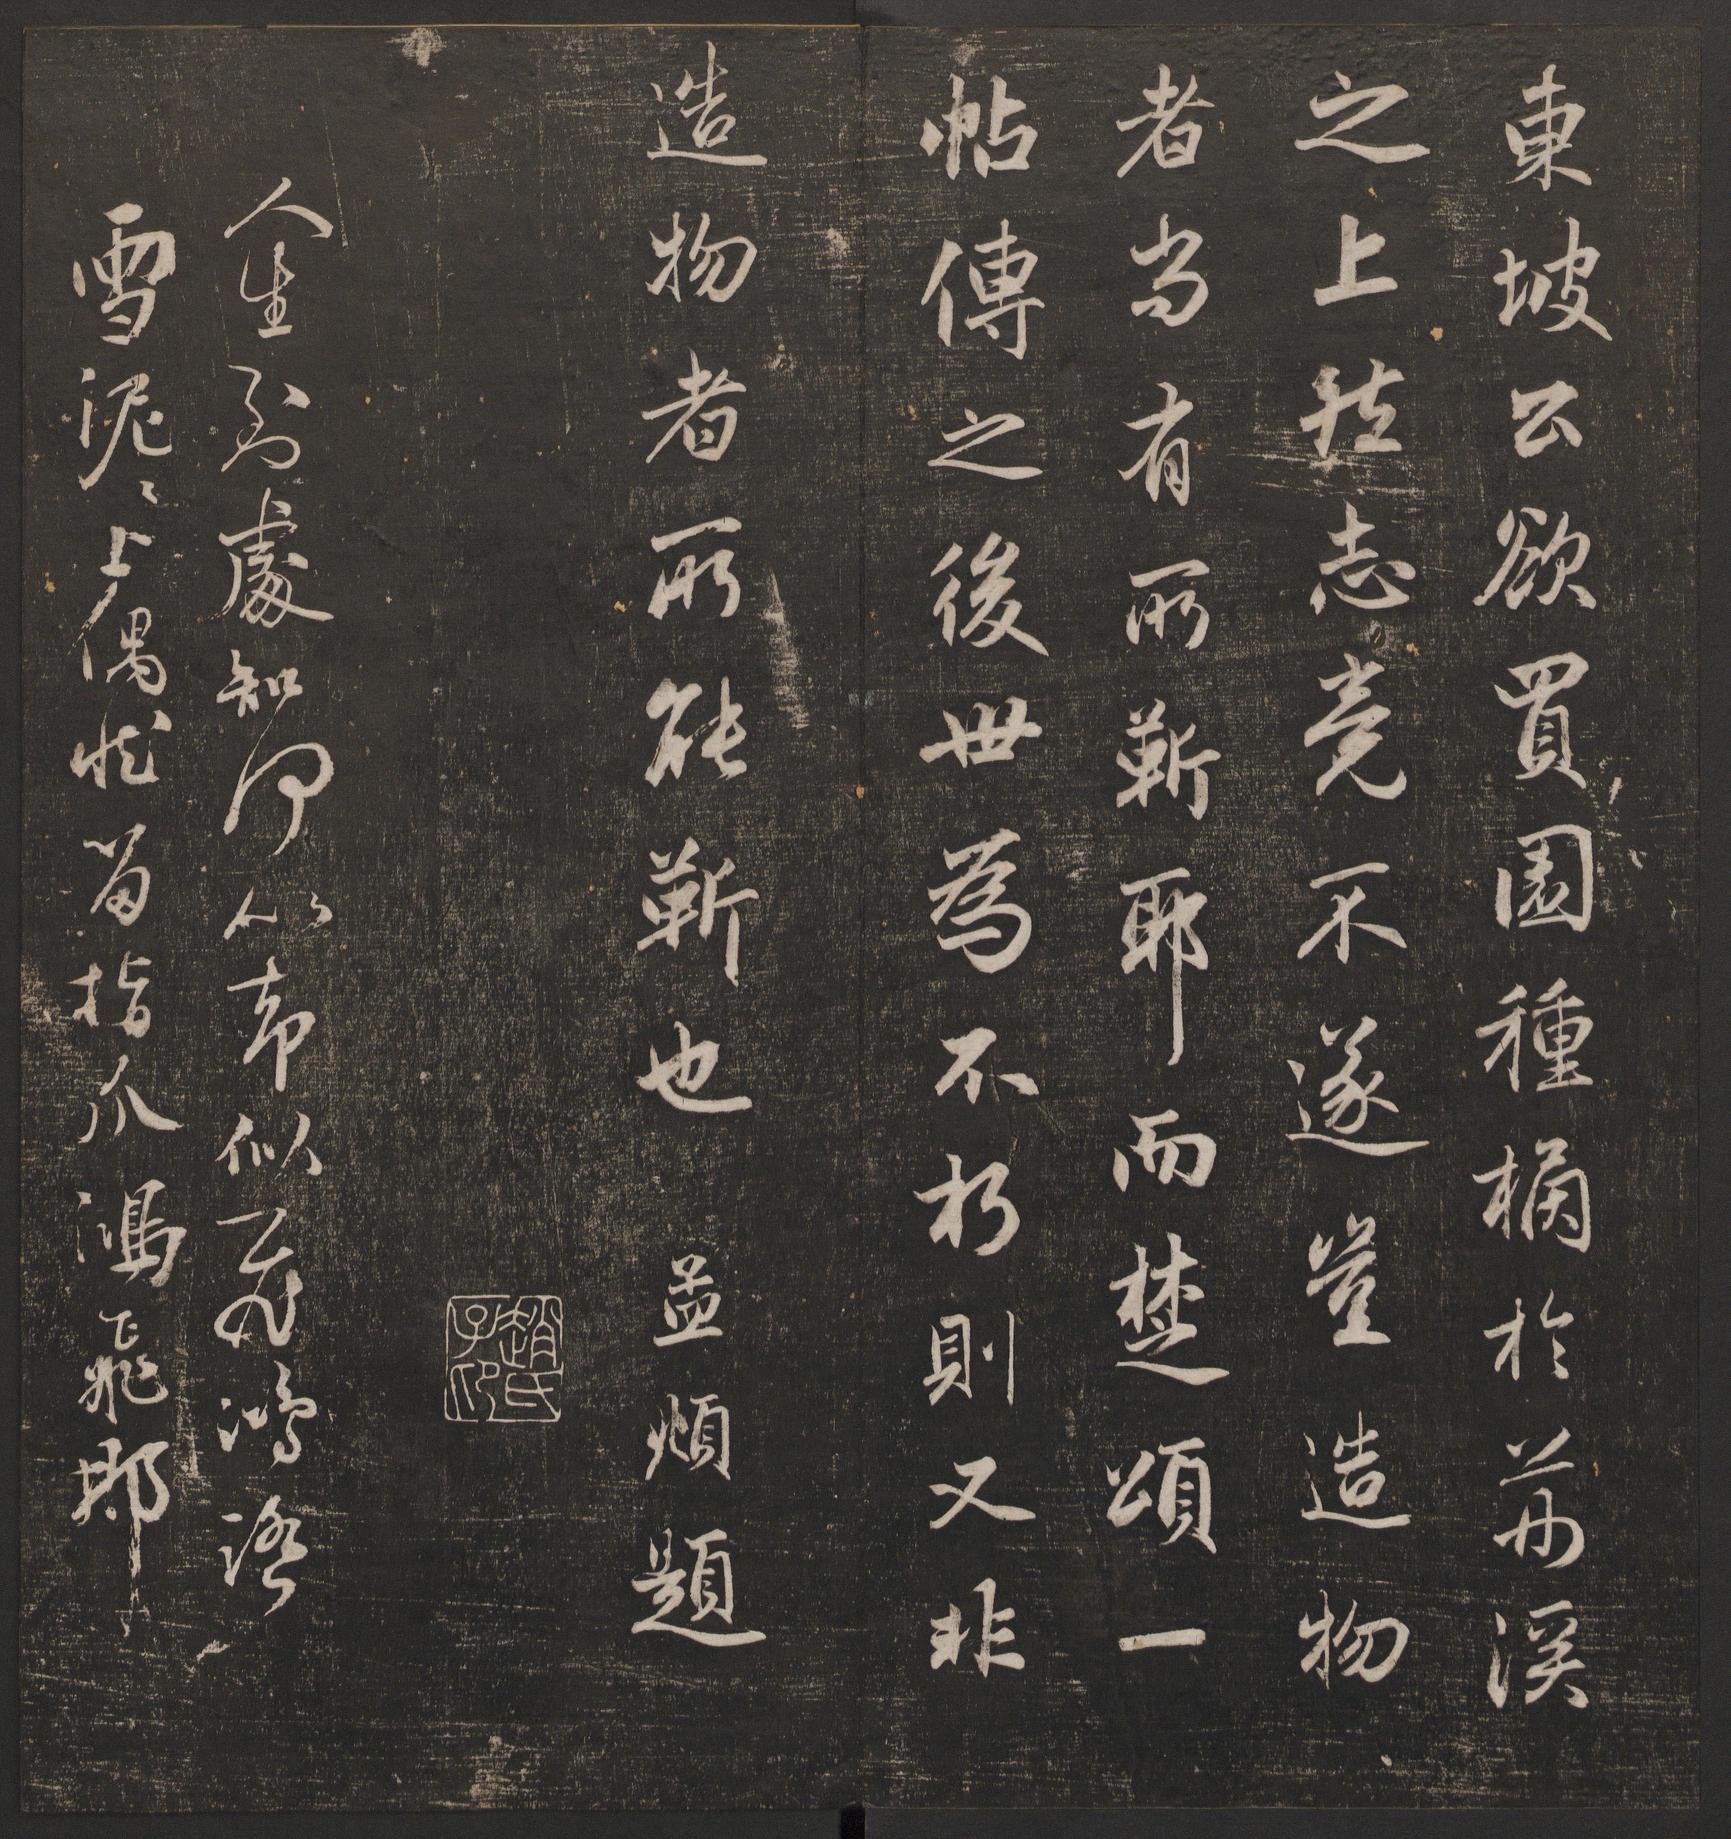 東坡公欲買園種橘於荊溪
之上然志竟不遂豈造物
者尚有所靳耶而楚頌一
帖傳之後世為不朽則又非
造物者所能靳也 孟頫題
趙氏子昂
人生到處知何似應似飛鴻踏
雪泥〻上偶然留指爪鴻飛那